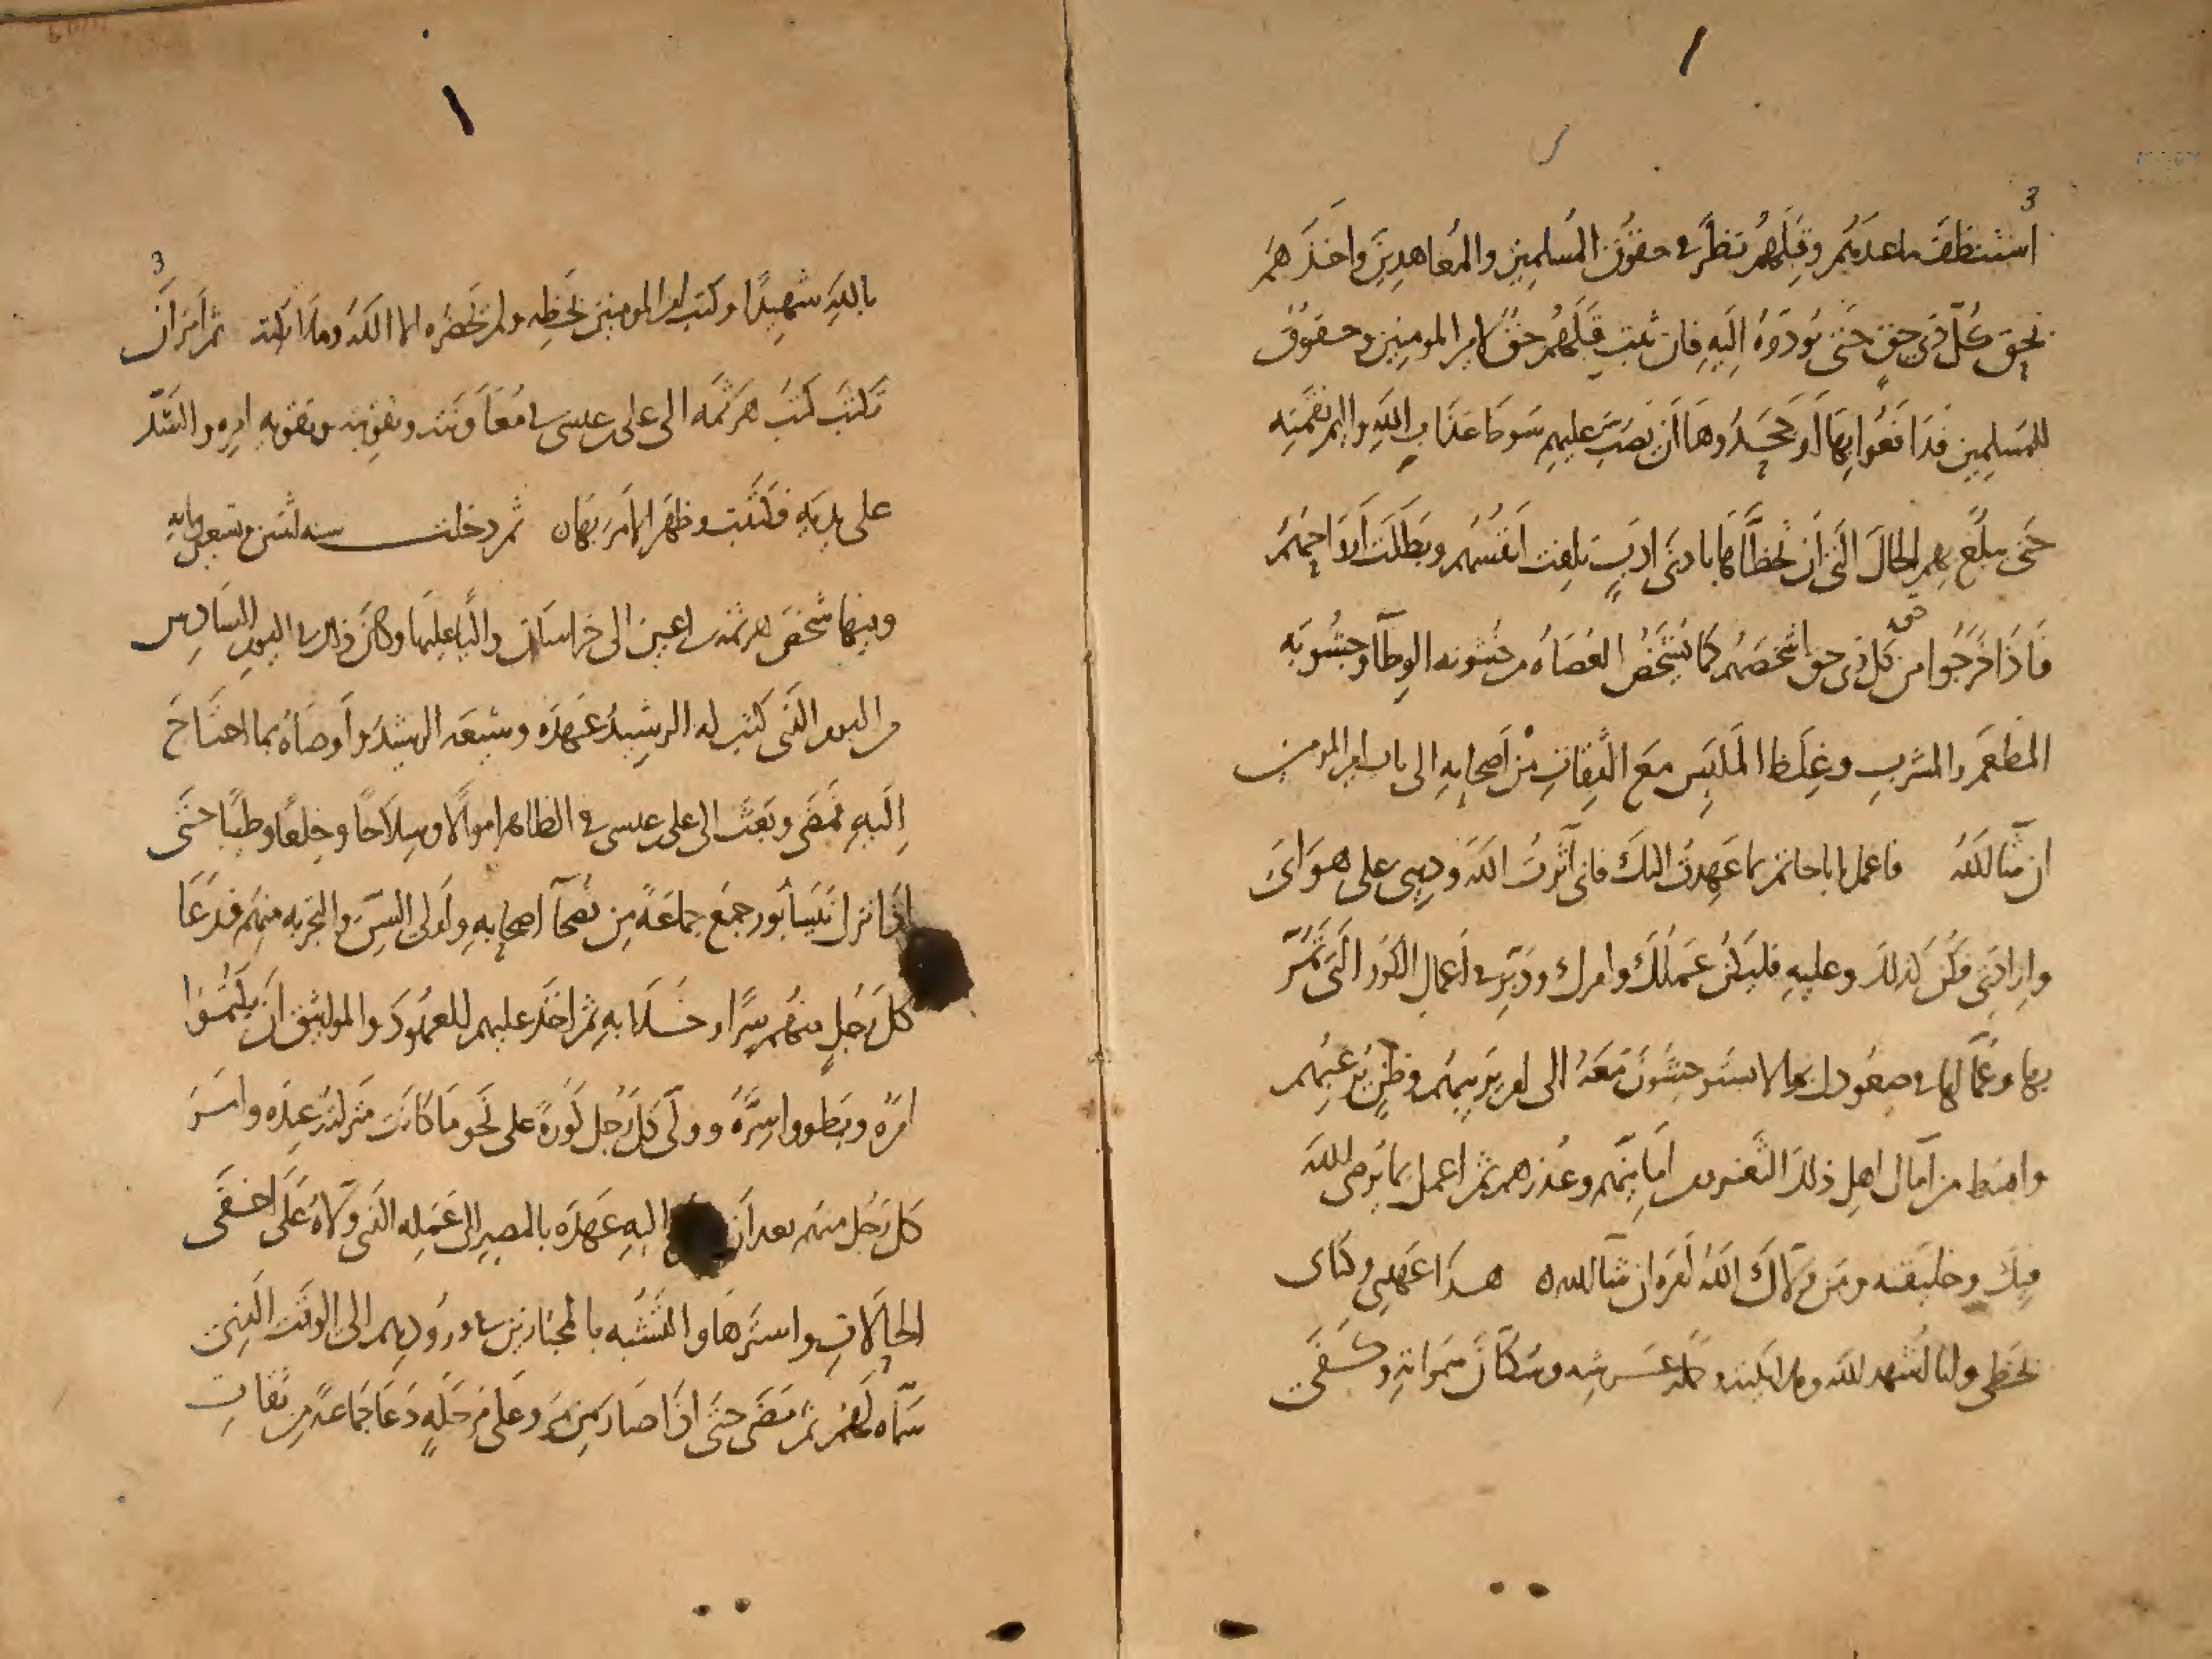 استنظف ما عندهم وقبلهم نظر في حقوق المسلمين والمعاهدين واخذهم
بحق كل ذى حق حتى يؤدوه اليه فان ثبت قبلهم حق لامير المومنين وحقوق
للمسلمين فدافعوا بها او جحدوها ان يصب عليهم سوط عذاب الله واليم نقمته
حتى يبلغ بهم الحال التى ان تخطاها بادنى ادب تلفت انفسهم وبطلت ارواحهم
فاذا خرجوا من حق كل ذى حق اشخصهم كما تشخص العصاه من خشونه الوطآ وخشونه
المطعم والمشرب وغلظ الملبس مع الثقات من اصحابه الى باب امير المومنين
ان شا الله فاعمل يابا حاتم بما عهدت اليك فانى آثرت الله ودينى على هواى
وارادتى فكن كذلك وعليه فليكن عملك وامرك ودبر في اعمال الكور التى تمر
بها وعمالها في صعودك بما لا يستوحشون معه الى امر يريبهم وظن يرعبهم
وابسط من آمال اهل ذلك الثغر ومن امانهم وعذرهم ثم اعمل بما يرضى الله
فيك وخليقته ومن ولاك الله امره ان شا الله هذا عهدى وكتابى
بخطى وانا اشهد الله وملايكته وحمله عرشه وسكان سمواته وكفى
بالله شهيدا وكتب امير المومنين بخطه ولم يحضره الا الله وملايكته ثم امر ان
تكتب كتب هرثمه الى على بن عيسى في معاونته وتقويته وتقويه امره والشد
على يديه فكتبت وظهر الامر بها ثم دخلت سنه اثنتين وتسعين ومايه
وفيها شخص هرثمه بن اعين الى خراسان واليا عليها وكان ذلك في اليوم السادس
من اليوم الذى كتب له الرشيد عهده وشيعه الرشيد واوصاه بما احتاج
اليه فمضى وبعث الى على بن عيسى في الظاهر اموالا وسلاحا وخلعا وطيبا حتى
اذا نزل نيسابور جمع جماعة من نصحآ اصحابه واولى السن والتجربه منهم فدعا
كل رجل منهم سرا وخلا به ثم اخذ عليهم العهود والمواثيق ان يكتموا
امره ويطووا سره وولى كل رجل كورة على نحو ما كانت منزلته عنده وامر
كل رجل منهم بعد ان اليه عهده بالمصير الى عمله الذى ولاه على اخفى
الحالات واسترها والتشبه بالمجتازين في ورودهم الى الوقت الذى
سماه لهم ثم مضى حتى اذا صار من مرو على مرحلة دعا جماعة من ثقات